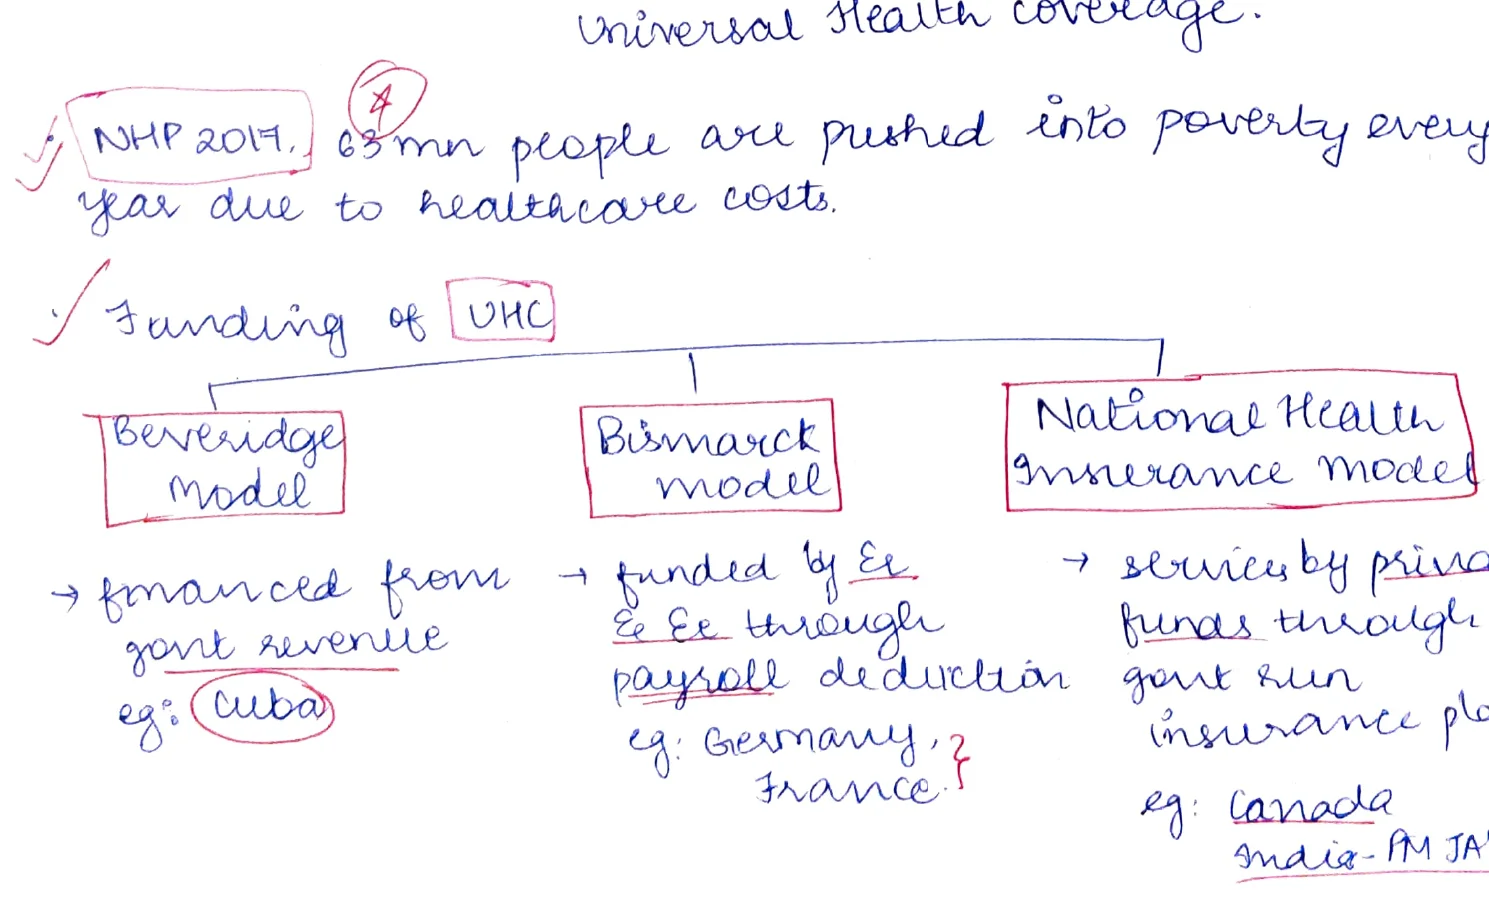 Universal Health coverage.
NHP 2017. 63 mn people are pushed into poverty every
year due to healthcare costs.
Funding of UHC
Beveridge
Model
Bismarck
model
National Health
Insurance Model
→ financed from
govt revenue
eg: Cuba
→ funded by Er
& Ee through
payroll deduction
eg: Germany,
France.
→ services by
funds through
govt run
insurance
eg: Canada
India - PM JA